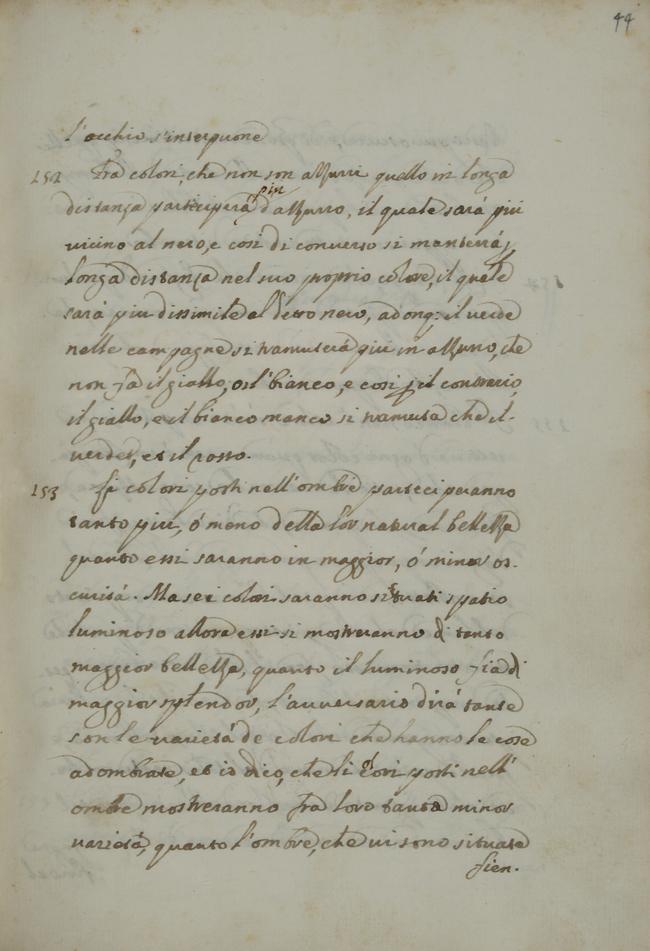 44
l'occhio s'interpone
152 Fra colori, che non son azzurri quello in longa
più
distanza parteciperà d'azzurro, il quale sarà più
vicino al nero, e così di converso si manterrà p
longa distanza nel suo proprio colore, il quale
sarà più dissimile al detto nero, adonq: il verde
nelle campagne si tramuterà più in azzurro, che
non fa il giallo, o il bianco, e così p il contrario,
il giallo, e il bianco manco si tramuta che il
verde, et il rosso.
153 Li colori posti nell'ombre parteciperanno
tanto più, ó meno della lor natural bellezza
quanto essi saranno in maggior, ó minor os-
curità. Ma se i colori saranno situati spatio
luminoso allora essi si mostreranno di tanto
maggior bellezza, quanto il luminoso fia di
maggior splendor, l'avversario dirà tante
son le varietà de colori che hanno le cose
adombrate, et io dico, che li colori posti nell'
ombre mostreranno fra loro tanta minor
varietà, quanto l'ombre, che vi sono situate
sien.